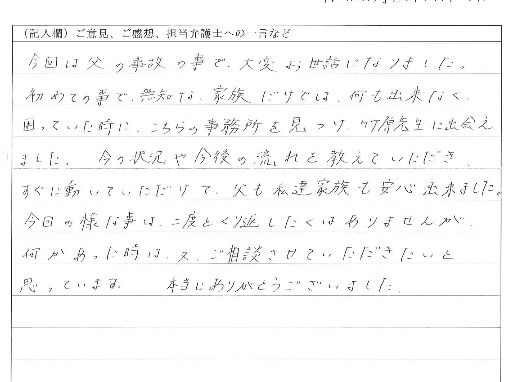 （記入欄）ご意見、ご感想、担当弁護士への一言など
今回は父の事故の事で、大変お世話になりました。
初めての事で、無知な、家族だけでは、何も出来なく
困っていた時に、こちらの事務所を見つけ、竹原先生に出会え
ました。 今の状況や今後の流れを教えていただき
すぐに動いていただけて、父も私達家族も安心出来ました。
今回の様な事は、二度とくり返したくはありませんが、
何かあった時は、又、ご相談させていただきたいと
思っています。 本当にありがとうございました。